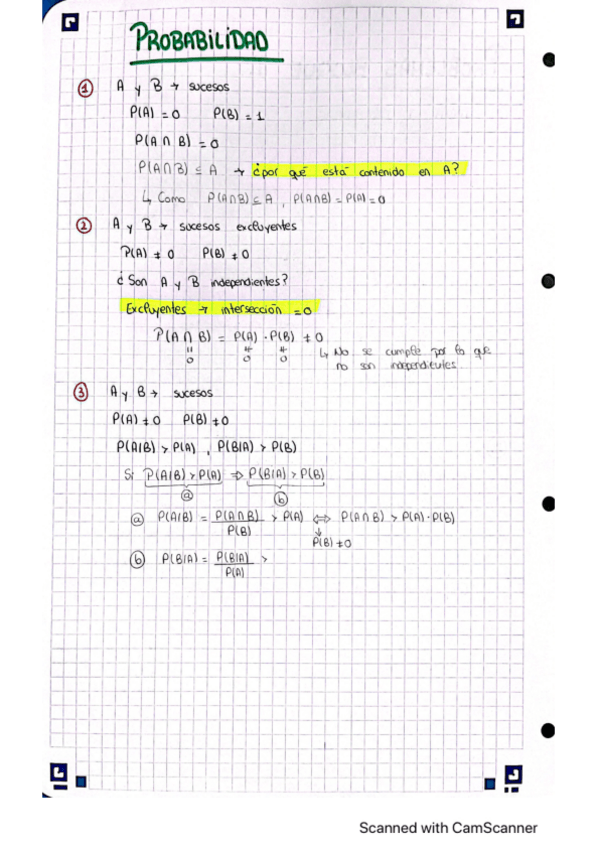 PROBABILIDAD
① A y B → sucesos
P(A) = 0 P(B) = 1
P(A ∩ B) = 0
P(A∩B) ⊆ A → ¿por qué está contenido en A?
↳ Como P(A∩B) ⊆ A, P(A∩B) = P(A) = 0
② A y B → sucesos excluyentes
P(A) ≠ 0 P(B) ≠ 0
¿Son A y B independientes?
Excluyentes → intersección = 0
P(A ∩ B) = P(A) · P(B) ≠ 0
= 0 ≠ 0 ≠ 0 ↳ No se cumple por lo que
no son independientes
③ A y B → sucesos
P(A) ≠ 0 P(B) ≠ 0
P(A/B) > P(A), P(B/A) > P(B)
Si P(A/B) > P(A) ⇒ P(B/A) > P(B)
ⓐ ⓑ
ⓐ P(A/B) = P(A∩B) / P(B) > P(A) ⇔ P(A∩B) > P(A)·P(B)
↓
P(B) ≠ 0
ⓑ P(B/A) = P(B/A) / P(A) >
Scanned with CamScanner